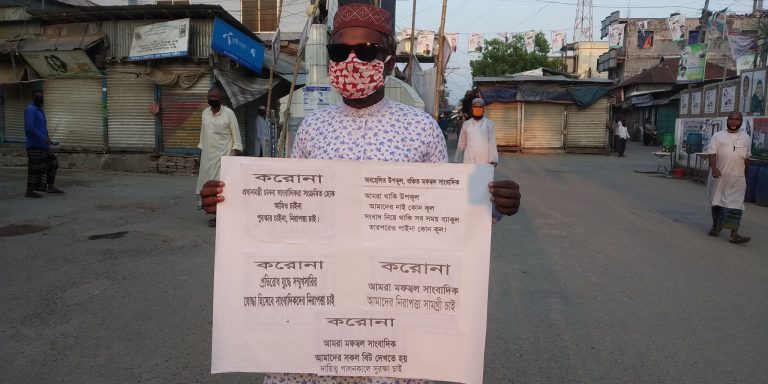 করোনা
প্রধানমন্ত্রী চাননা সাংবাদিকরা সংক্রমিত হোক
আমিও চাইনা
পুরস্কার চাইনা, নিরাপত্তা চাই।
অবহেলিত উপকূল, বঞ্চিত মফস্বল সাংবাদিক
আমরা থাকি উপকূল
আমাদের নাই কোন কূল
সংবাদ নিয়ে থাকি সব সময় ব্যাকুল
তারপরেও পাইনা কোন কূল!
করোনা
প্রতিরোধ যুদ্ধে সম্মুখসারির
যোদ্ধা হিসেবে সাংবাদিকদের নিরাপত্তা চাই
করোনা
আমরা মফস্বল সাংবাদিক
আমাদের নিরাপত্তা সামগ্রী চাই
করোনা
আমরা মফস্বল সাংবাদিক
আমাদের সকল বিট দেখতে হয়
দায়িত্ব পালনকালে সুরক্ষা চাই